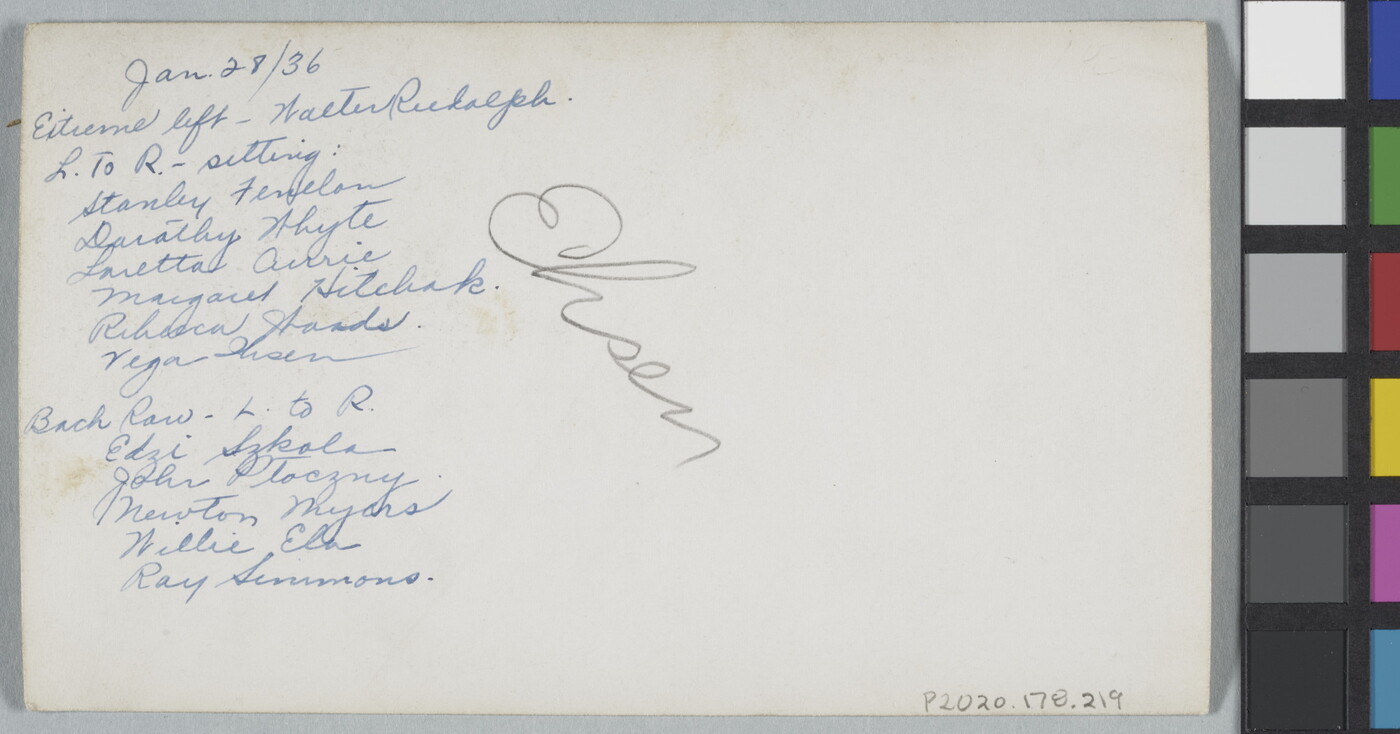 Jan. 28/36
Extreme left - Walter Rudolph.
L. To R. - sitting:
Stanley Fenelon
Dorothy Whyte
Loretta Currie
Margaret Hitchak.
Rebecca Woods.
Vega Ihsen
Back Row - L. to R.
Edzi Szkola
John Ptoczny.
Newton Myars
Willie Ela
Ray Simmons.
P2020.178.219